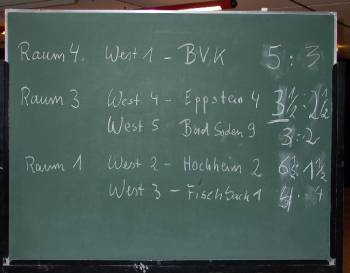 Raum 4. West 1 - BVK 5 : 3
Raum 3 West 4 - Eppstein 4 3½ : 2½
West 5 Bad Soden 9 3 : 2
Raum 1 West 2 - Hochheim 2 6½ : 1½
West 3 - Fischbach 1 4 : 4